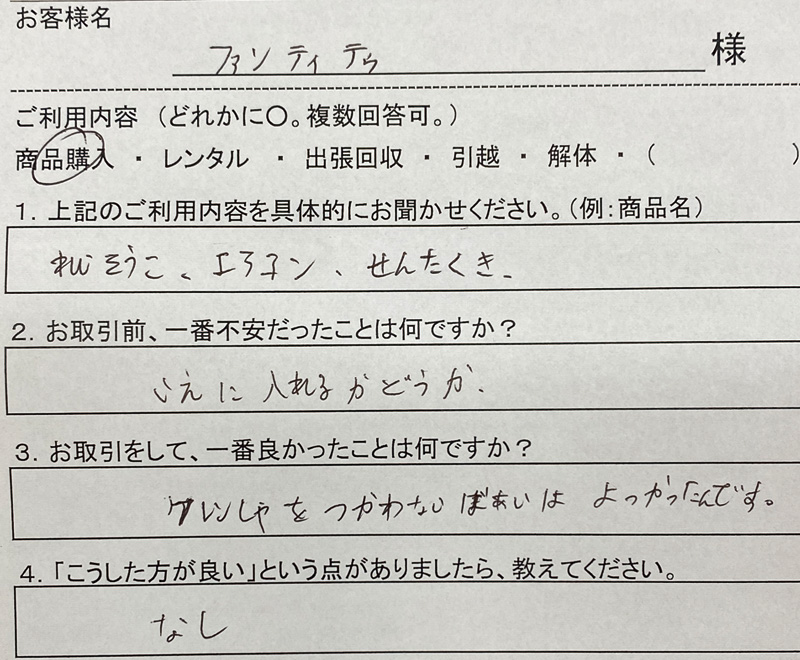 お客様名
ファンティテゥ 様
ご利用内容 (どれかに〇。複数回答可。)
商品購入 ・ レンタル ・ 出張回収 ・ 引越 ・ 解体 ・ ( )
1. 上記のご利用内容を具体的にお聞かせください。(例:商品名)
れいぞうこ、エアコン、せんたくき.
2. お取引前、一番不安だったことは何ですか?
いえに入れるかどうか.
3. お取引をして、一番良かったことは何ですか?
クレンしゃをつかわないばあいは よっかったんです。
4. 「こうした方が良い」という点がありましたら、教えてください。
なし